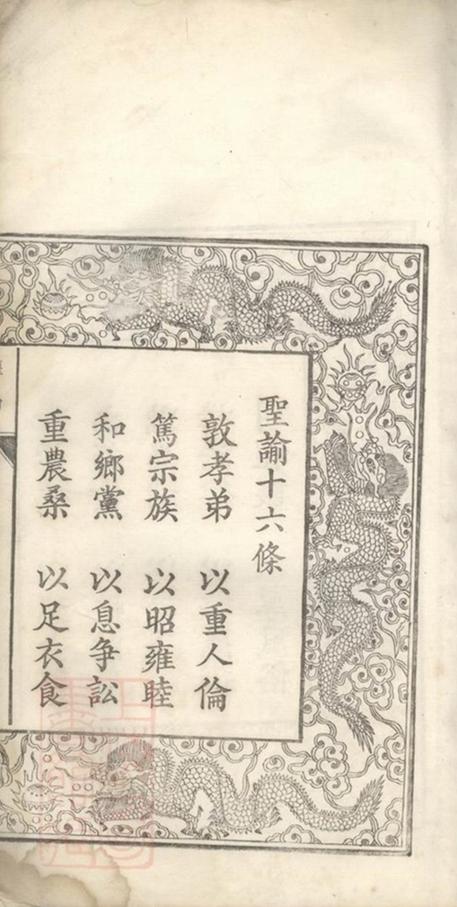 聖諭十六條
敦孝弟 以重人倫
篤宗族 以昭雍睦
和鄉黨 以息爭訟
重農桑 以足衣食